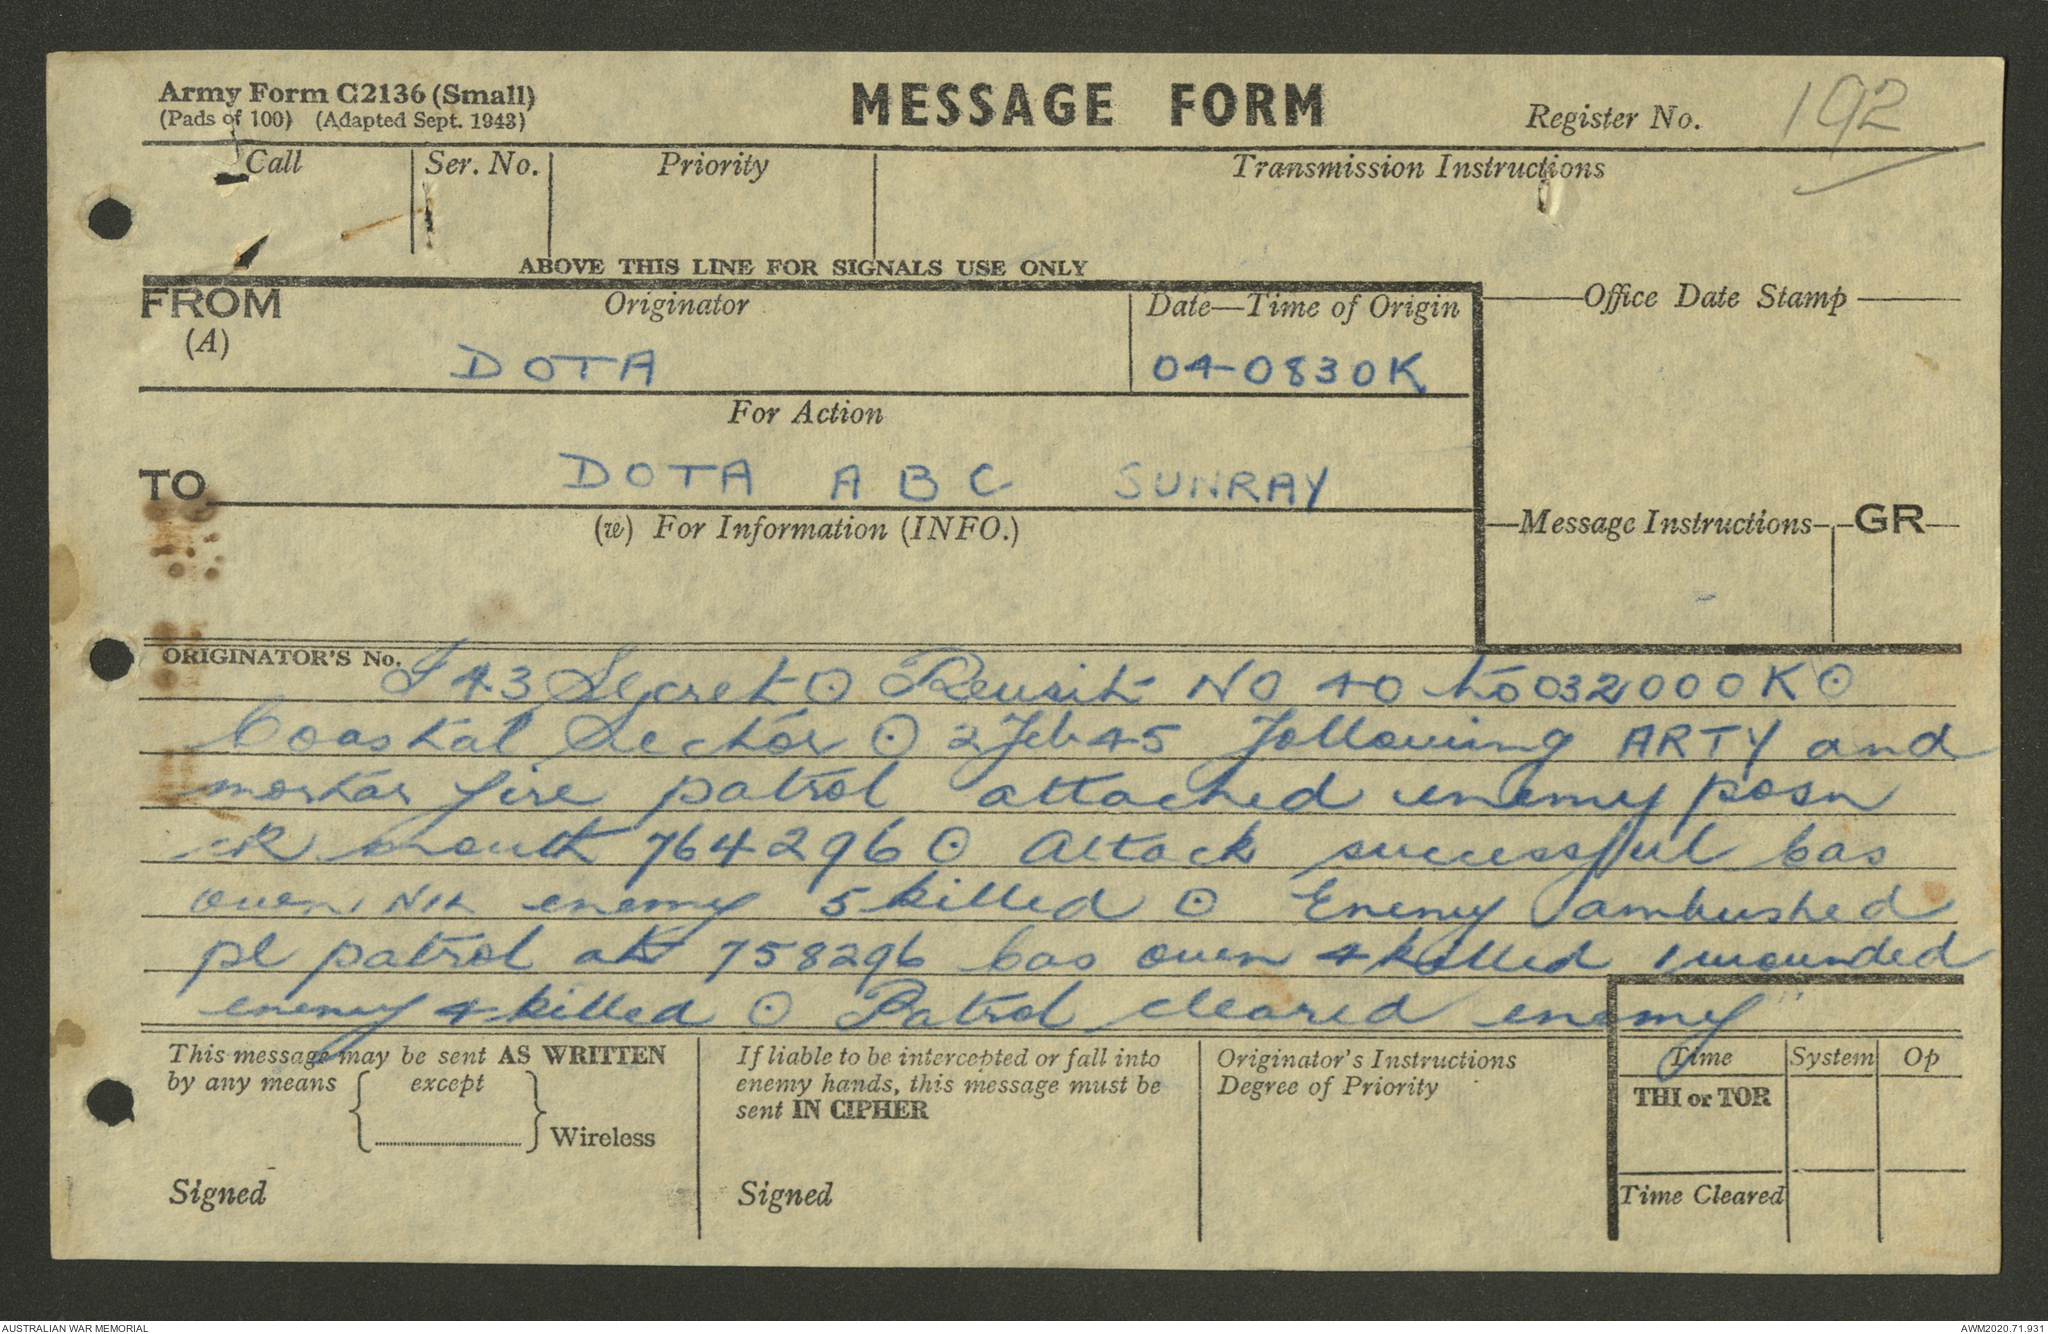 Army Form C2136 (Small)
(Pads of 100) (Adapted Sept. 1943)
MESSAGE FORM
Register No. 192
Call
Ser. No.
Priority
Transmission Instructions
ABOVE THIS LINE FOR SIGNALS USE ONLY
FROM
(A)
Originator
DOTA
Date—Time of Origin
04-0830K
Office Date Stamp
For Action
TO
DOTA A B C SUNRAY
(w) For Information (INFO.)
Message Instructions
GR
ORIGINATOR'S No.
I 43 Secret ⊙ Reusit No 40 to 032000K ⊙
Coastal Sector ⊙ 2 Feb 45 following ARTY and
mortar fire patrol attached enemy posn
mouth 764296 ⊙ Attack successful Cas
own NIL enemy 5 killed ⊙ Enemy ambushed
pl patrol at 758296 Cas own 4 killed 1 wounded
enemy 4 killed ⊙ Patrol cleared enemy
This message may be sent AS WRITTEN
by any means except
Wireless
Signed
If liable to be intercepted or fall into
enemy hands, this message must be
sent IN CIPHER
Signed
Originator's Instructions
Degree of Priority
Time
System
Op
THI or TOR
Time Cleared
AUSTRALIAN WAR MEMORIAL
AWM2020.71.931